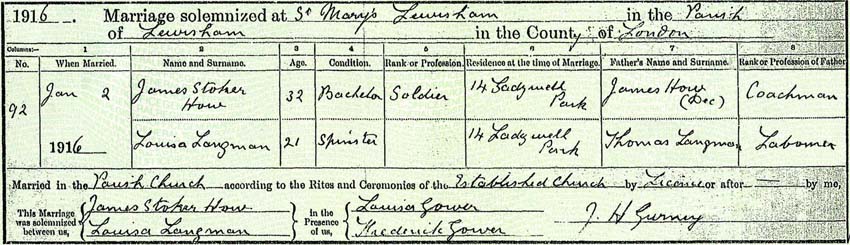 1916. Marriage solemnized at St Mary's Lewisham in the Parish
of Lewisham in the County of London
Columns:— 1 2 3 4 5 6 7 8
No. When Married. Name and Surname. Age. Condition. Rank or Profession. Residence at the time of Marriage. Father's Name and Surname. Rank or Profession of Father
92 Jan 2 James Stoker How 32 Bachelor Soldier 14 Ladywell Park James How (Dec) Coachman
1916 Louisa Langman 21 Spinster 14 Ladywell Park Thomas Langman Labourer
Married in the Parish Church according to the Rites and Ceremonies of the Established Church by Licence or after — by me,
This Marriage was solemnized between us, James Stoker How Louisa Langman in the Presence of us, Louisa Gower Frederick Gower J H Gurney